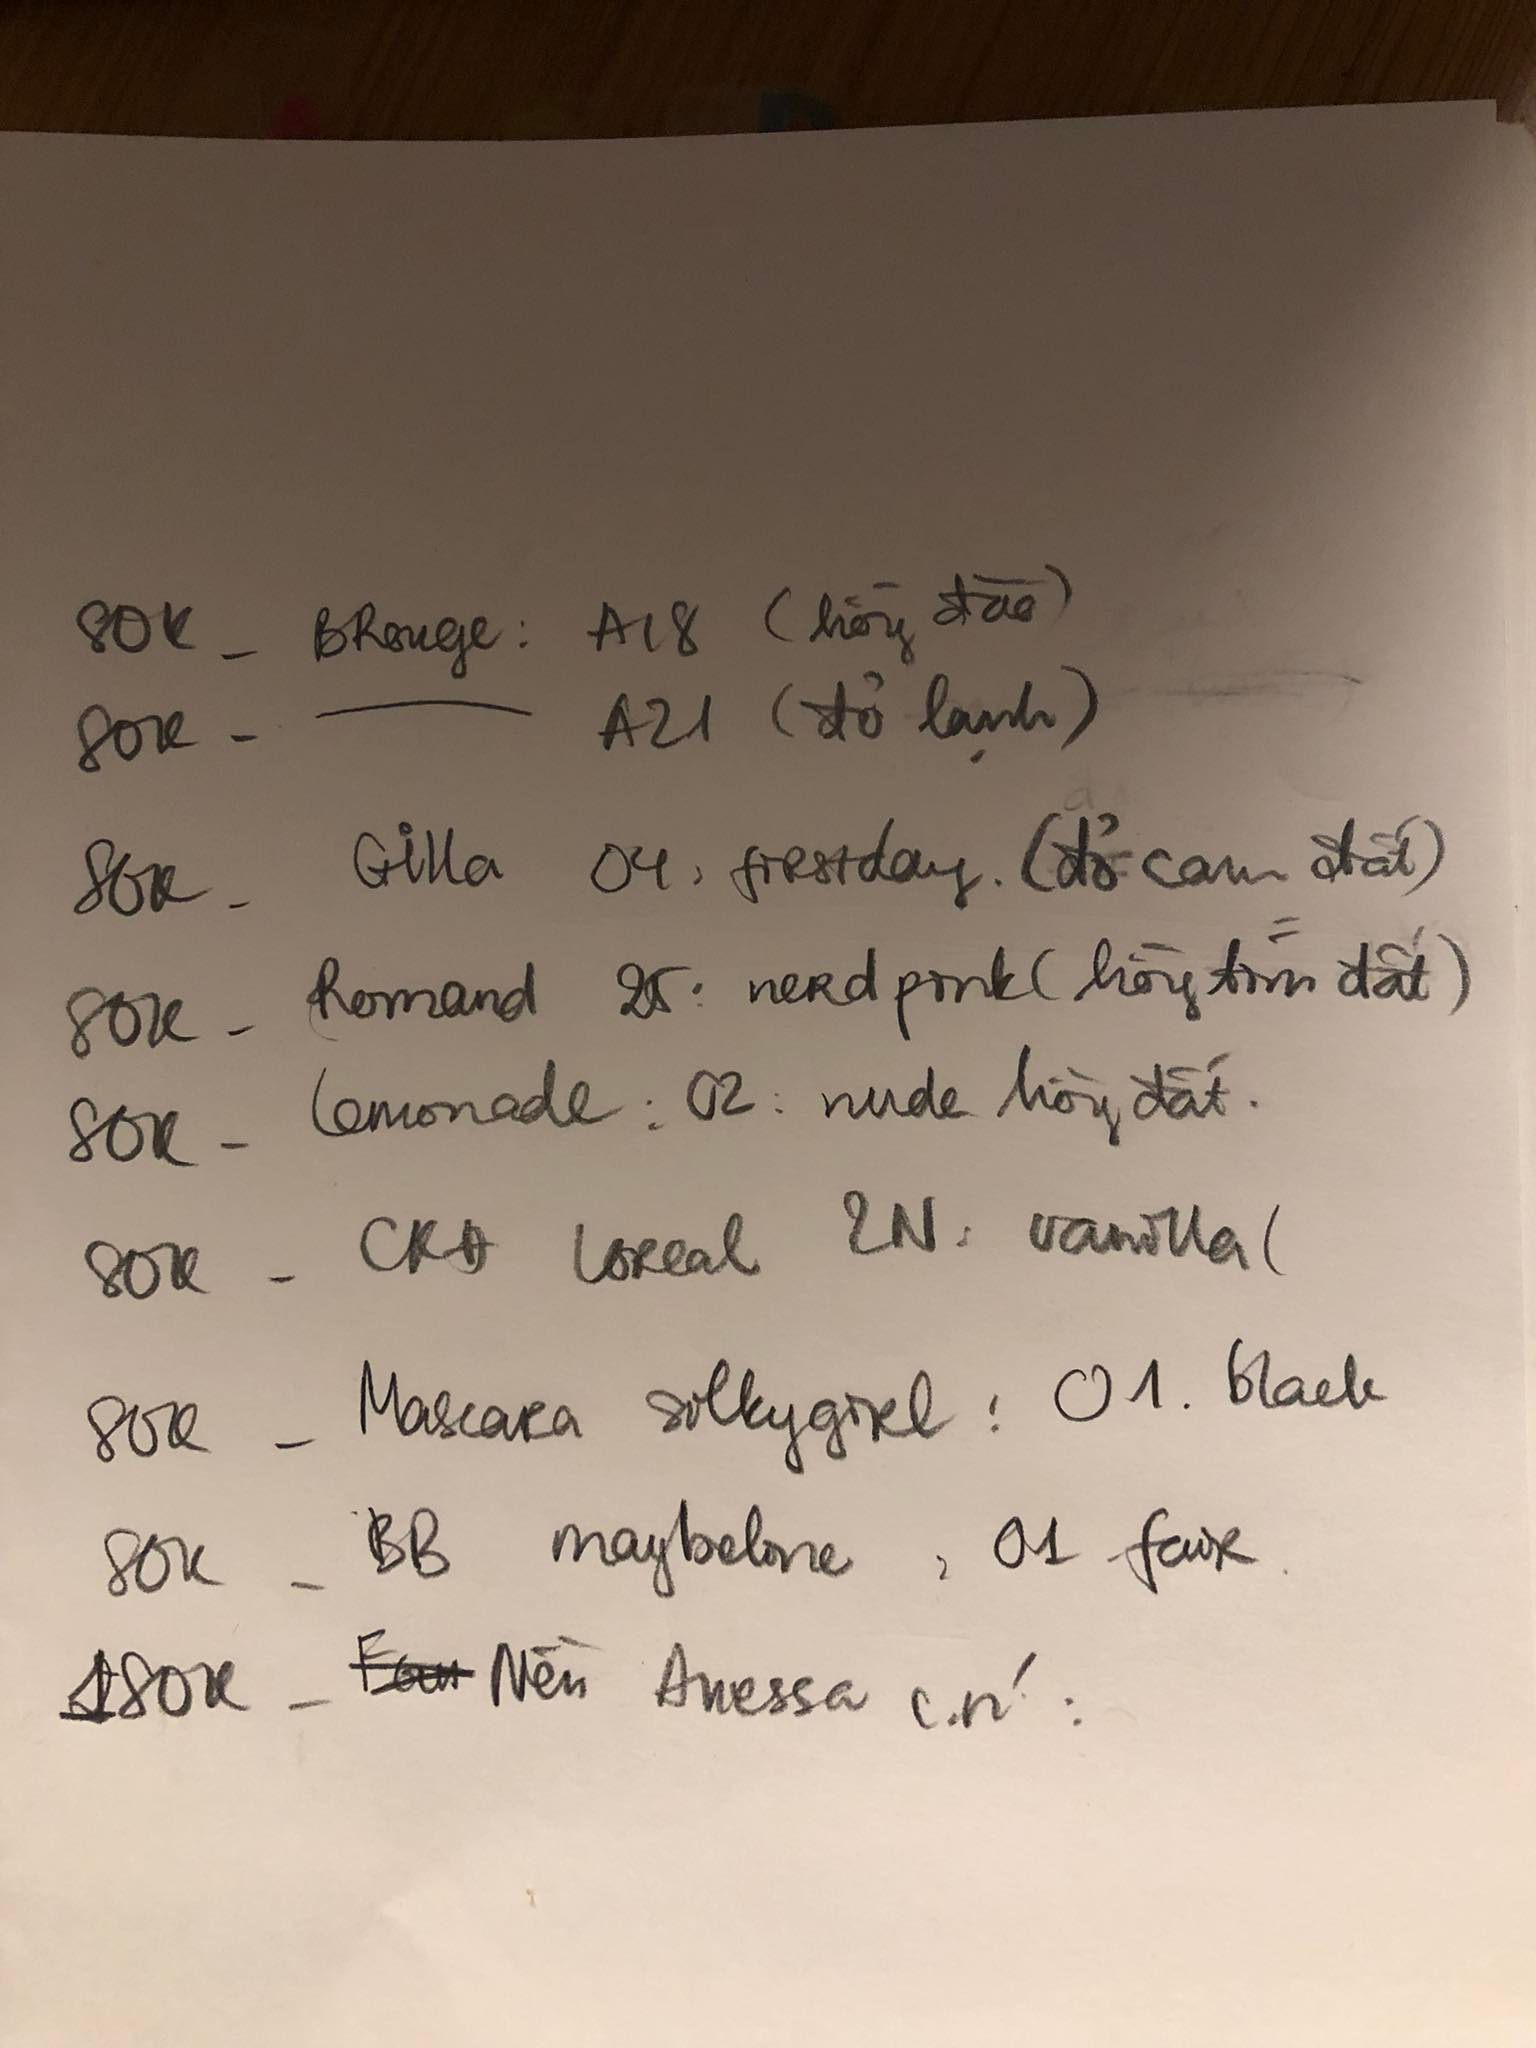 80K - BRouge: A18 (hồng đào)
80K - —— A21 (đỏ lạnh)
80K - Gilla 04: firstday. (đỏ cam đất)
80K - Romand 25: nerdpink (hồng tím đất)
80K - Lemonade: 02: nude hồng đất.
80K - CKĐ Loreal 2N: vanilla (
80K - Mascara silkygirl: 01. black
80K - BB maybeline, 01 fair.
180K - Nền Anessa c.n':